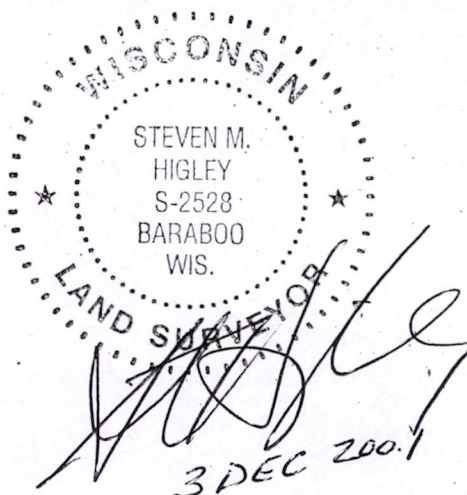 WISCONSIN
STEVEN M.
HIGLEY
S-2528
BARABOO
WIS.
LAND SURVEYOR
3 DEC 2001